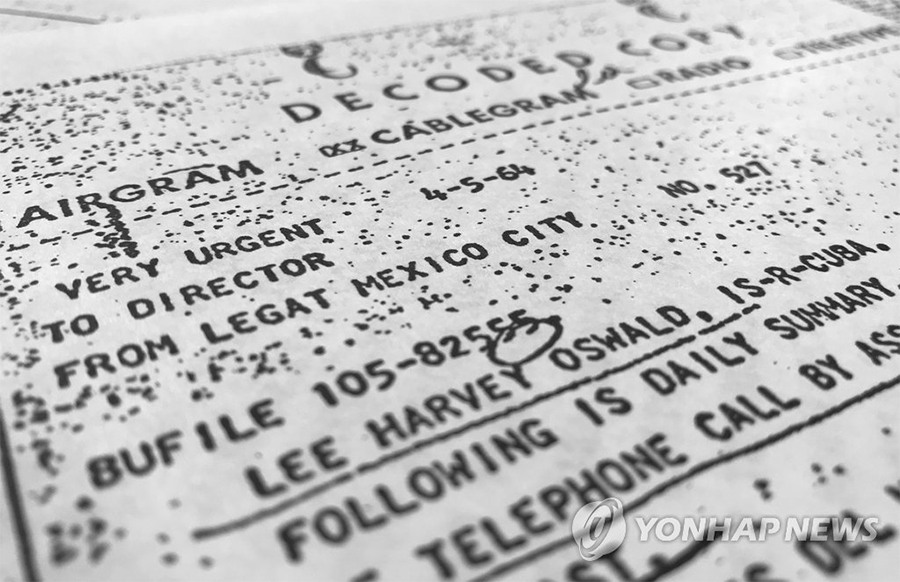 DECODED COPY
AIRGRAM XX CABLEGRAM RADIO TELETYPE
VERY URGENT 4-5-64
TO DIRECTOR
FROM LEGAT MEXICO CITY NO. 527
BUFILE 105-82555
LEE HARVEY OSWALD, IS-R-CUBA.
FOLLOWING IS DAILY SUMMARY.
TELEPHONE CALL BY
DEL
YONHAP NEWS